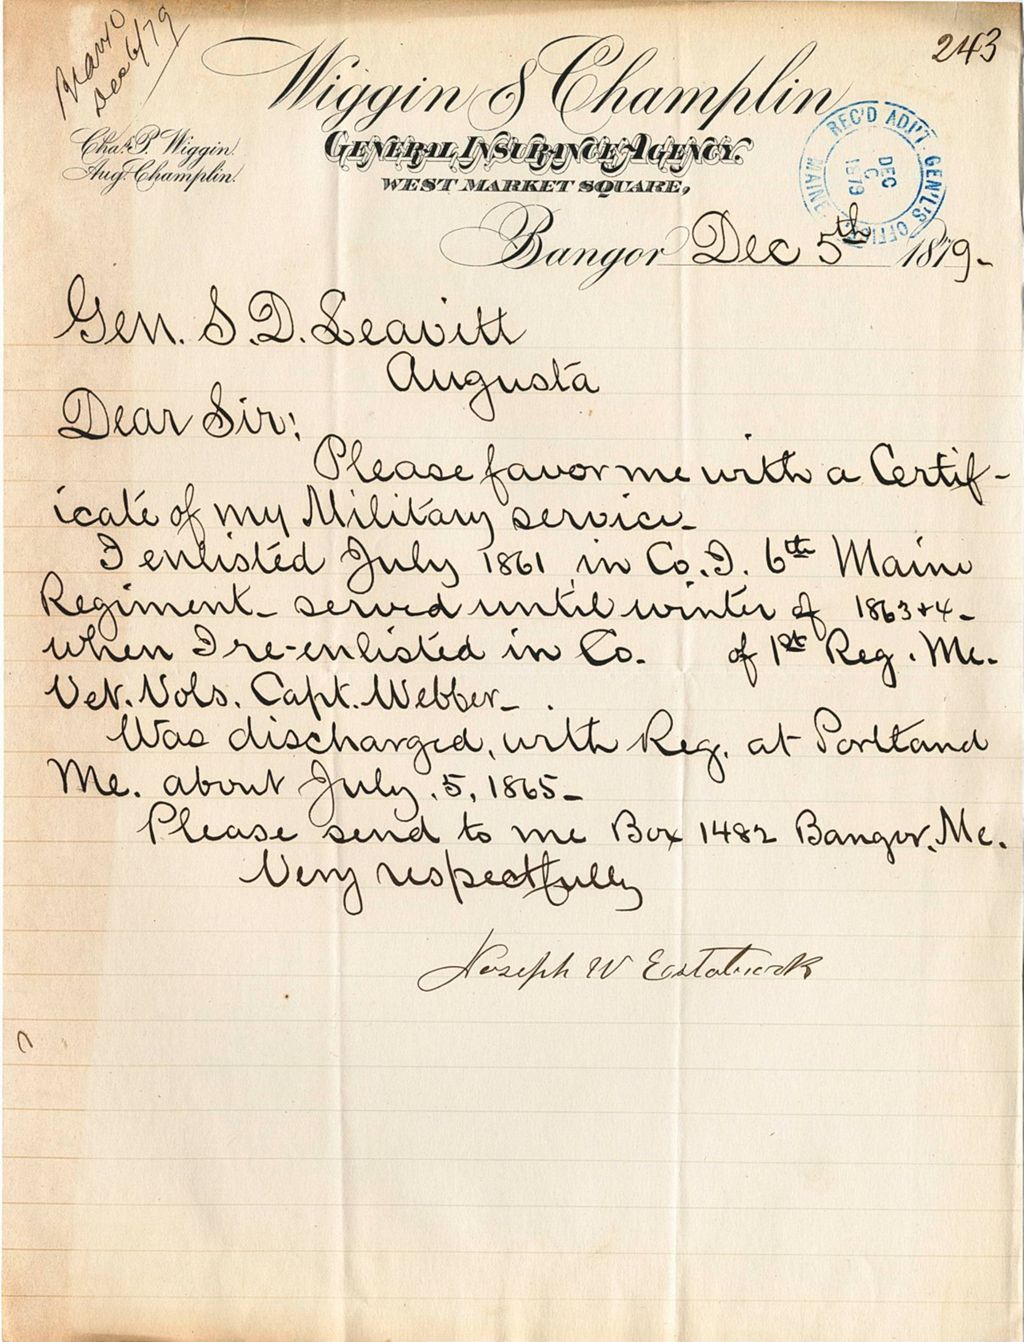 Dec 6/79
243
Wiggin & Champlin
Chas. P. Wiggin.
Aug. Champlin.
GENERAL INSURANCE AGENCY.
WEST MARKET SQUARE,
REC'D ADJ'T. GEN'L'S OFFICE MAINE
DEC
1879
Bangor Dec 5th 1879-
Gen. S. D. Leavitt
Augusta
Dear Sir:
Please favor me with a Certif-
icate of my Military service-
I enlisted July 1861 in Co. I. 6th Maine
Regiment- served until winter of 1863+4-
when I re-enlisted in Co. of 1st Reg. Me.
Vet. Vols. Capt. Webber-
Was discharged, with Reg. at Portland
Me. about July. 5, 1865-
Please send to me Box 1482 Bangor, Me.
Very respectfully
Joseph W Eastabrook